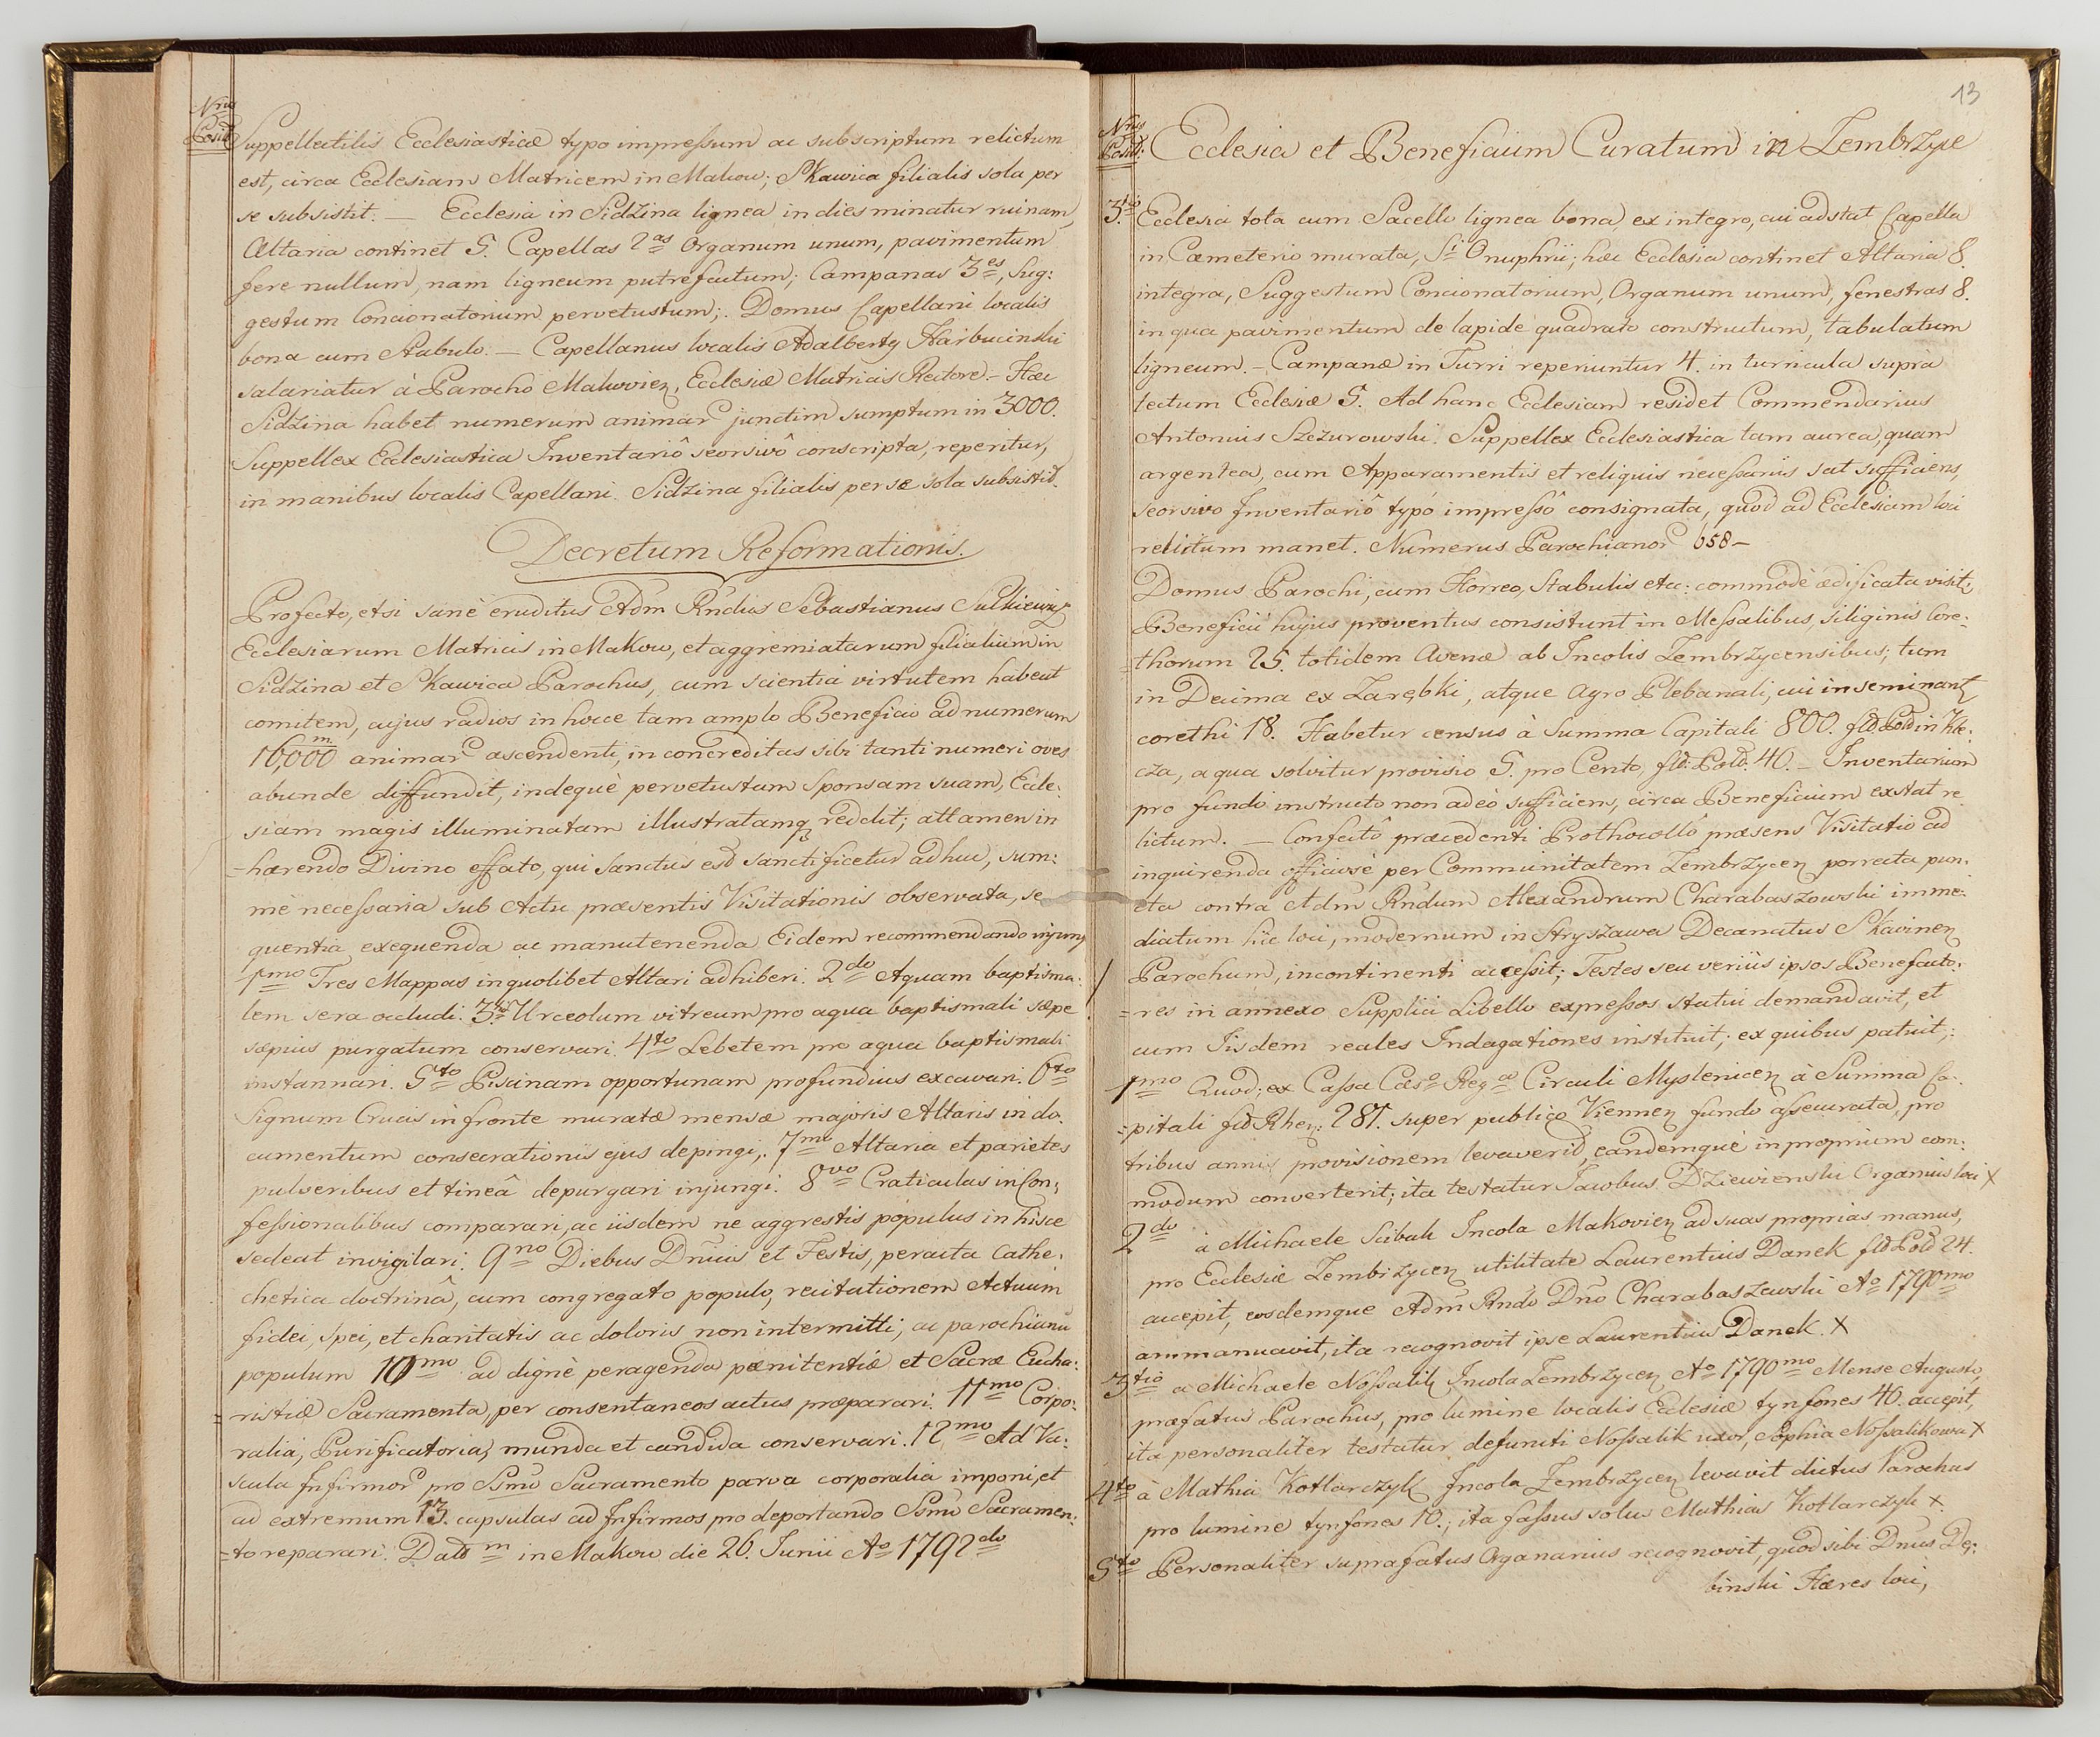 Nrus
Posit:
Suppellectilis Ecclesiasticæ typo impressum ac subscriptum relictum
est, circa Ecclesiam Matricem in Makow; Skawica filialis sola per
se subsistit. — Ecclesia in Sidzina lignea in dies minatur ruinam,
Altaria continet 5. Capellas 2as Organum unum, pavimentum
fere nullum, nam ligneum putrefactum; Campanas 3es, Sug:
gestum Concionatorium pervetustum;. Domus Capellani localis
bona cum Stabulo. — Capellanus localis Adalbertg Harbucinski
salariatur à Parocho Makovien, Ecclesiæ Matricis Rectore. – Hæc
Sidzina habet numerum animar junctim sumptum in 3000.
Suppellex Ecclesiastica Inventariô seorsivô conscripta, reperitur,
in manibus localis Capellani. Sidzina filialis per se sola subsistit.
Decretum Reformationis.
Profecto, etsi sanè eruditus Adm Rndus Sebastianus Sulkiewicz
Ecclesiarum Matricis in Makow, et aggremiatarum filialium in
Sidzina et Skawica Parochus, cum scientia virtutem habeat
comitem, cujus radios in hocce tam amplo Beneficio ad numerum
16,000m animar ascendenti, in concreditas sibi tanti numeri oves
abunde diffundit, indequè pervetustam Sponsam suam, Eccle:
siam magis illuminatam illustratamq reddit; attamen in
=hærendo Divino effato, qui Sanctus est sanctificetur adhuc, sum:
mè necessaria sub Actu præsentis Visitationis observata, se
quentia exequenda ac manutenenda Eidem recommendando injung
1mo Tres Mappas in quolibet Altari adhiberi. 2do Aquam baptisma:
lem sera occludi. 3tio Urceolum vitreum pro aqua baptismali sæpe
sæpius purgatum conservari. 4to Lebetem pro aqua baptismali
instannari. 5to Piscinam opportunam profundius excavari. 6to
Signum Crucis in fronte muratæ mensæ majoris Altaris in do.
cumentum consecrationis ejus depingi,. 7mo Altaria et parietes
pulveribus et tineâ depurgari injungi. 8vo Craticulas in Con:
fessionalibus comparari, ac iisdem ne aggrestis populus in hisce
sedeat invigilari. 9no Diebus Dnicis et Festis, peracta Cathe:
chetica doctrinâ, cum congregato populo, recitationem Actuum
fidei, spei, et charitatis ac doloris non intermitti, ac parochianū
populum 10mo ad dignè peragenda pænitentiæ et Sacræ Eucha:
=ristiæ Sacramenta, per consentaneos actus præparari. 11mo Corpo:
ralia, Purificatoria, munda et candida conservari. 12mo Ad Va:
scula Infirmor pro Ssmo Sacramento parva corporalia imponi, et
ad extremum 13. capsulas ad Infirmos pro deportando Ssmo Sacramen:
=to reparari. Datum in Makow die 26. Junii Ao 1792do
13
Nrus
Posit:
Ecclesia et Beneficium Curatum in Zembrzyce
3tio Ecclesia tota cum Sacello lignea bona, ex integro, cui adstat Capella
in Cæmeterio murata, Sti Onuphrii; hæc Ecclesia continet Altaria 8.
integra, Suggestum Concionatorium, Organum unum, fenestras 8.
in qua pavimentum de lapide quadrato constructum, tabulatum
ligneum. – Campanæ in Turri reperiuntur 4. in turricula supra
tectum Ecclesiæ 5. Ad hanc Ecclesiam residet Commendarius
Antonius Szczurowski. Suppellex Ecclesiastica tam aurea, quam
argentea, cum Apparamentis et reliquis necessariis sat sufficiens,
seorsivo Inventariô typo impressô consignata, quod ad Ecclesiam loci
relictum manet. Numerus Parochianor 658 –
Domus Parochi, cum Horreo, Stabulis etc: commodè ædificata visit:
Beneficii hujus proventus consistunt in Messalibus, siliginis Core:
=thorum 25. totidem Avenæ ab Incolis Zembrzycensibus; tum
in Decima ex Zarębki, atque Agro Plebanali, cui inseminant
corethi 18. Habetur census à Summa Capitali 800. fld Pold in Kle:
cza, a qua solvitur provisio 5. pro Cento, fld: Pold. 40. – Inventarium
pro fundo instructo non adeò sufficiens, circa Beneficium exstat re
lictum. — Confectô præcedenti Prothocollô præsens Visitatio ad
inquirenda officiosè per Communitatem Zembrzycen porrecta pun:
cta contra Adm Rndum Alexandrum Charabaszowski imme:
diatum hic loci, modernum in Stryszawa Decanatus Skavinen
Parochum, incontinenti accessit; Testes seu veriùs ipsos Benefacto:
=res in annexo Supplici Libello expressos statui demandavit, et
cum Iisdem reales Indagationes instituit; ex quibus patuit,:
1mo Quod; ex Cassa Cæso Regæ Circuli Myslenicen à Summa Ca:
=pitali fld Rhen: 281. super publico Viennen fundo assecurata, pro
tribus annis provisionem levaverit, eandemquè in proprium com:
modum converterit; ita testatur Jacobus Dziewienski Organiis loci x
2do à Michaele Scibak Incola Makovien ad suas proprias manus,
pro Ecclesiæ Zembrzycen utilitate Laurentius Danek fld Pold 24.
accepit, eosdemque Adm Rndo Dno Charabaszewski Ao 1790mo
ammanuavit, ita recognovit ipse Laurentius Danek. x
3tio a Michaele Nossalik Incola Zembrzycen Ao 1790mo Mense Augusto,
præfatus Parochus, pro lumine localis Ecclesiæ tynfones 40. accepit,
ita personaliter testatur defuncti Nossalik uxor, Sophia Nossalikowa x
4to à Mathia Kotlarczyk Incola Zembrzycen levavit dictus Parochus
pro lumine tynfones 10.; ita fassus solus Mathias Kotlarczyk x.
5to Personaliter suprafatus Organarius recognovit, quod sibi Dnus Dę:
binski Hæres loci,